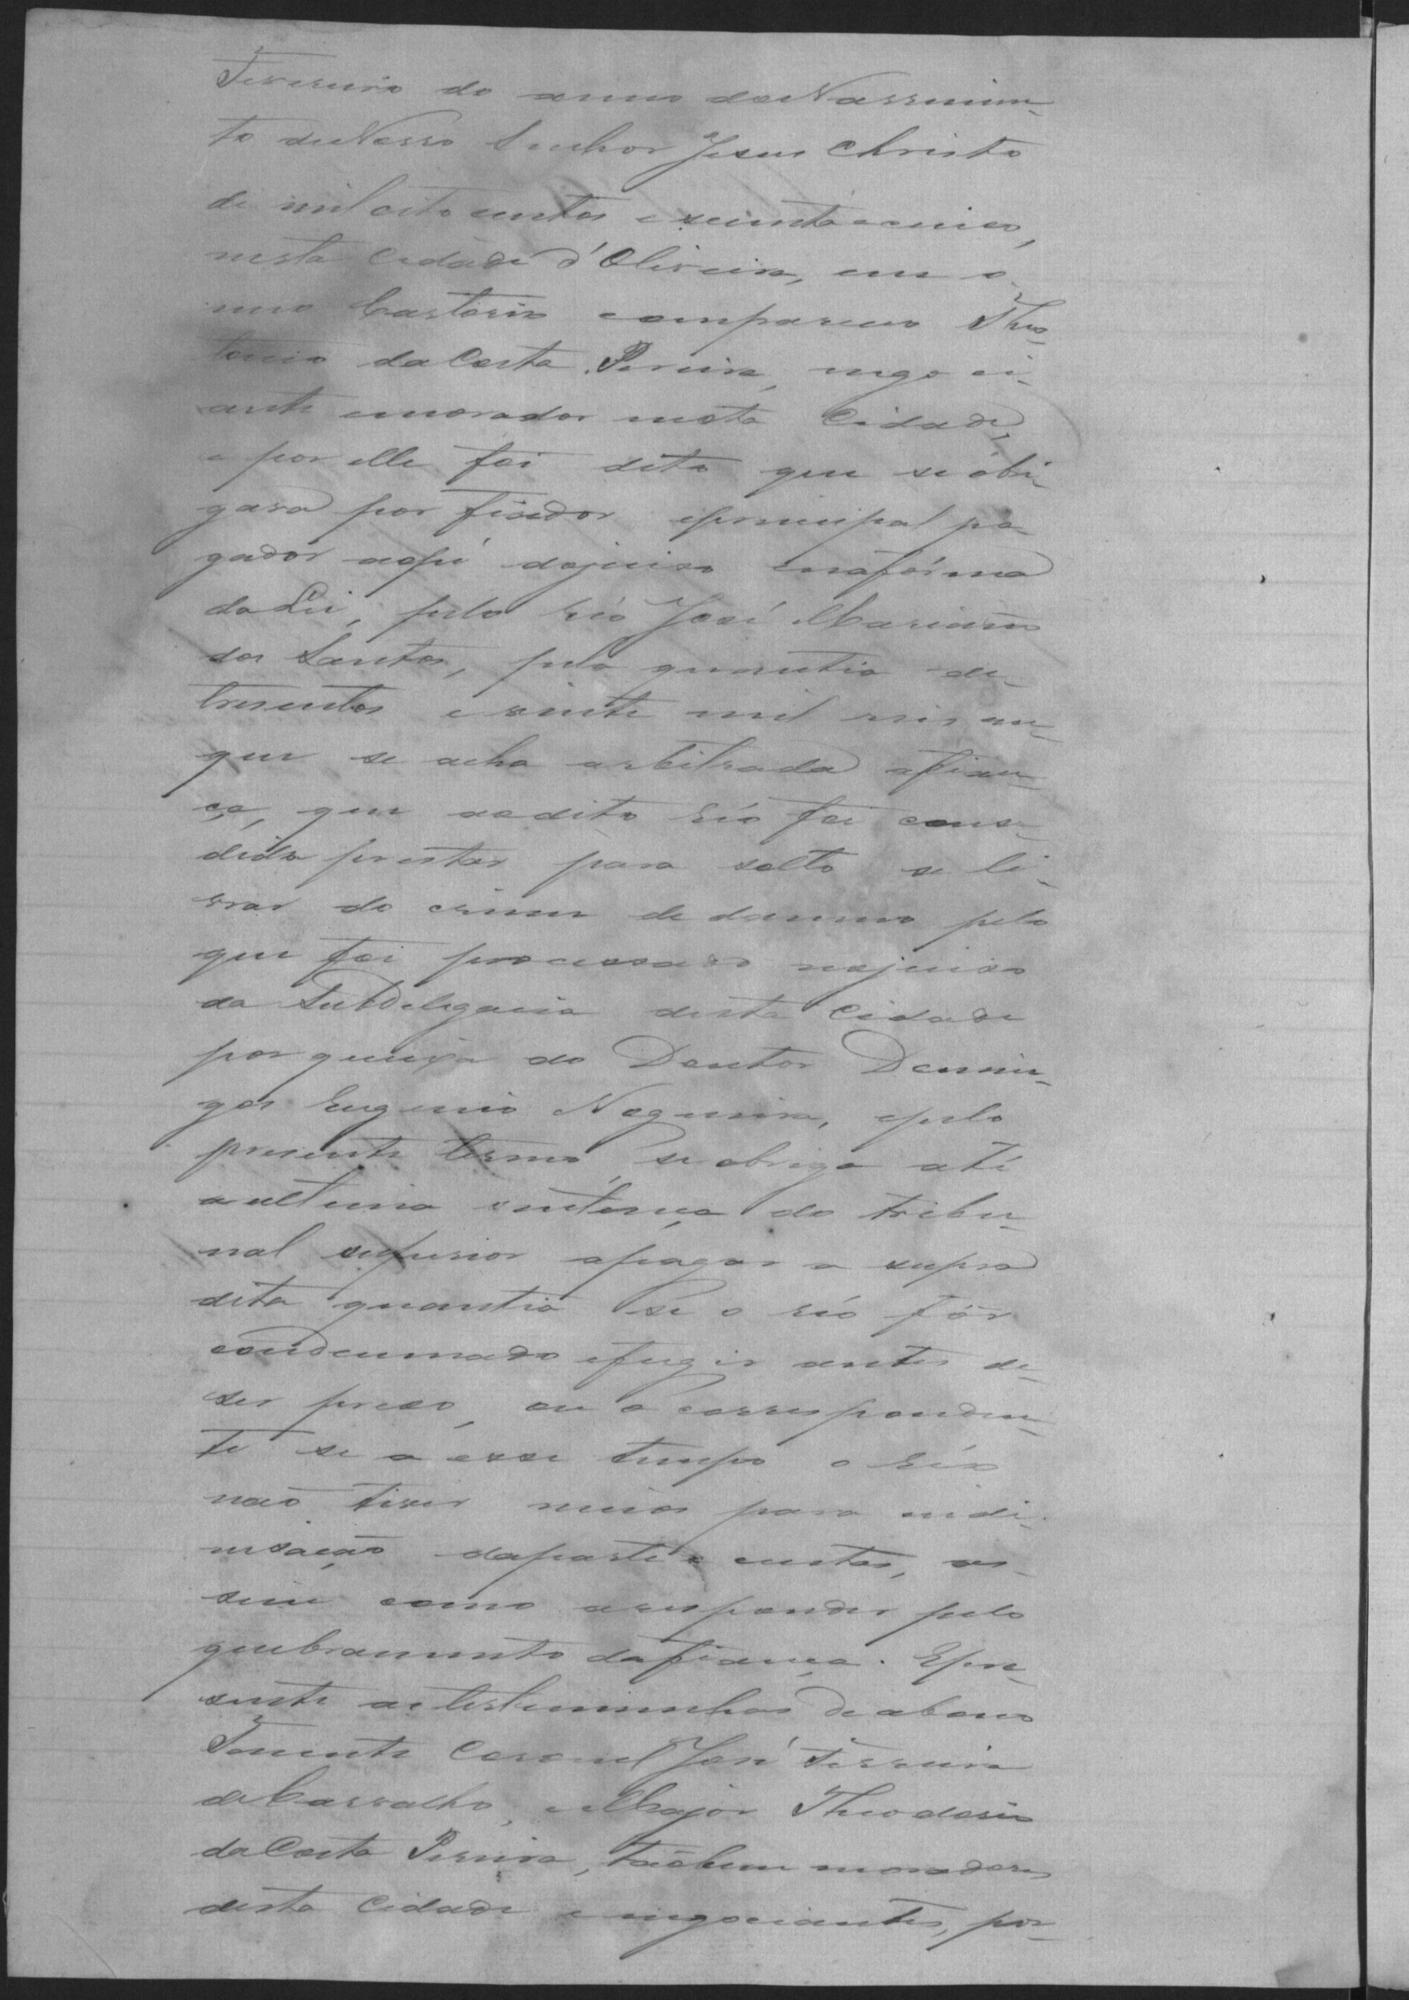 Fevereiro do anno do Nascimen-
to de Nosso Senhor Jesus Christo
de mil oito centos e setenta e cinco,
nesta Cidade d'Oliveira, em o
meo Cartorio compareceo Theo-
tonio da Costa Pereira, negoci-
ante e morador nesta Cidade,
e por elle foi dito que se obri-
gava por fiador e principal pa-
gador aqui do juiso e na fórma
da Lei, pelo réo José Mariano
dos Santos, pela quantia de
tresentos e vinte mil reis em
que se acha arbitrada a fian-
ça, que ao dito réo foi conce-
dida prestar para solto se li-
vrar do crime de damno pelo
que foi processado no juiso
da Subdelegacia desta Cidade
por queixa do Doutor Domin-
gos Eugenio Nogueira, e pelo
presente termo se obriga até
a ultima sentença do tribu-
nal superior a pagar a supra
dita quantia se o réo fôr
condemnado e fugir antes de
ser preso, ou a corresponden-
te se a esse tempo o réo
não tiver meios para indi-
nisação da parte e custas, as-
sim como a responder pelo
quebramento da fiança. E pre-
sente as testemunhas de abono
Tenente Coronel José Ferreira
de Carvalho, e Major Theodosio
da Costa Pereira, tãobem moradores
desta Cidade e negociantes, por